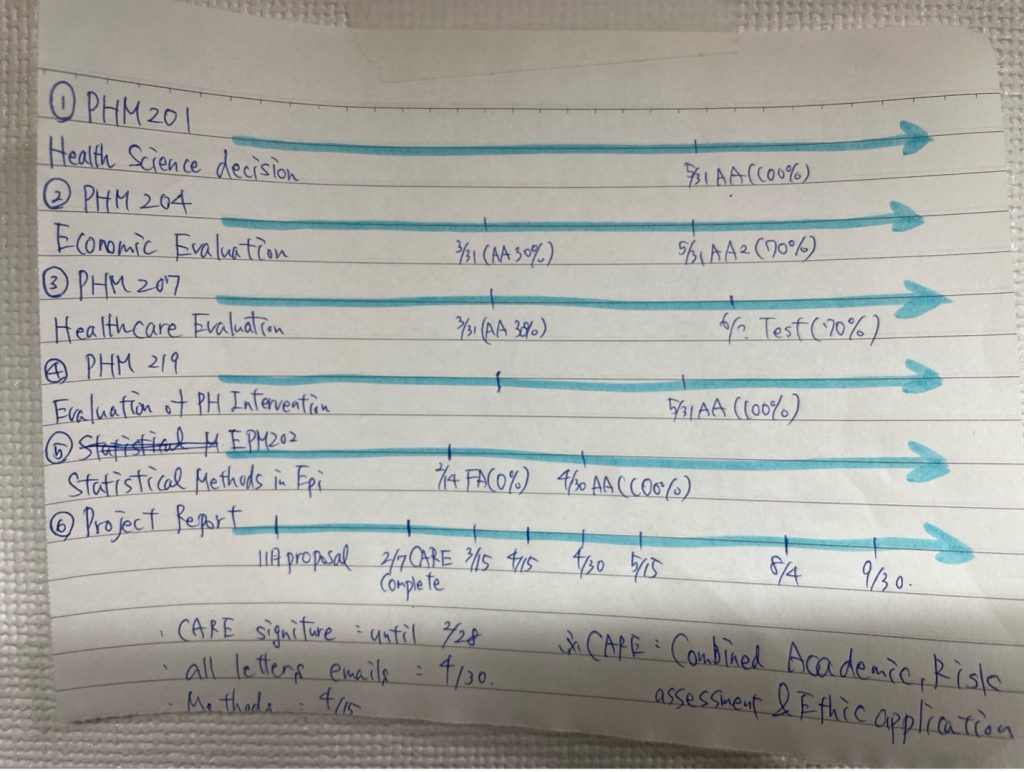 ① PHM201
Health Science decision
5/31 AA (100%)
② PHM 204
Economic Evaluation
3/31 (AA 30%)
5/31 AA2 (70%)
③ PHM 207
Healthcare Evaluation
3/31 (AA 30%)
6/? Test (70%)
④ PHM 219
Evaluation of PH Intervention
5/31 AA (100%)
⑤ Statistical M EPM202
Statistical Methods in Epi
2/14 FA (0%)
4/30 AA (100%)
⑥ Project Report
proposal
2/7 CARE
Complete
3/15
4/15
4/30
5/15
8/4
9/30.
· CARE signiture : until 2/28
· all letters emails : 4/30.
· Methods : 4/15
※ CARE : Combined Academic, Risk
assessment & Ethic application